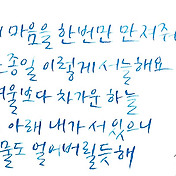 마음을 한번만 만져주
종일 이렇게 서늘해요
울보다 차가운 하늘
아래 내가 서있으니
물도 얼어버릴듯해